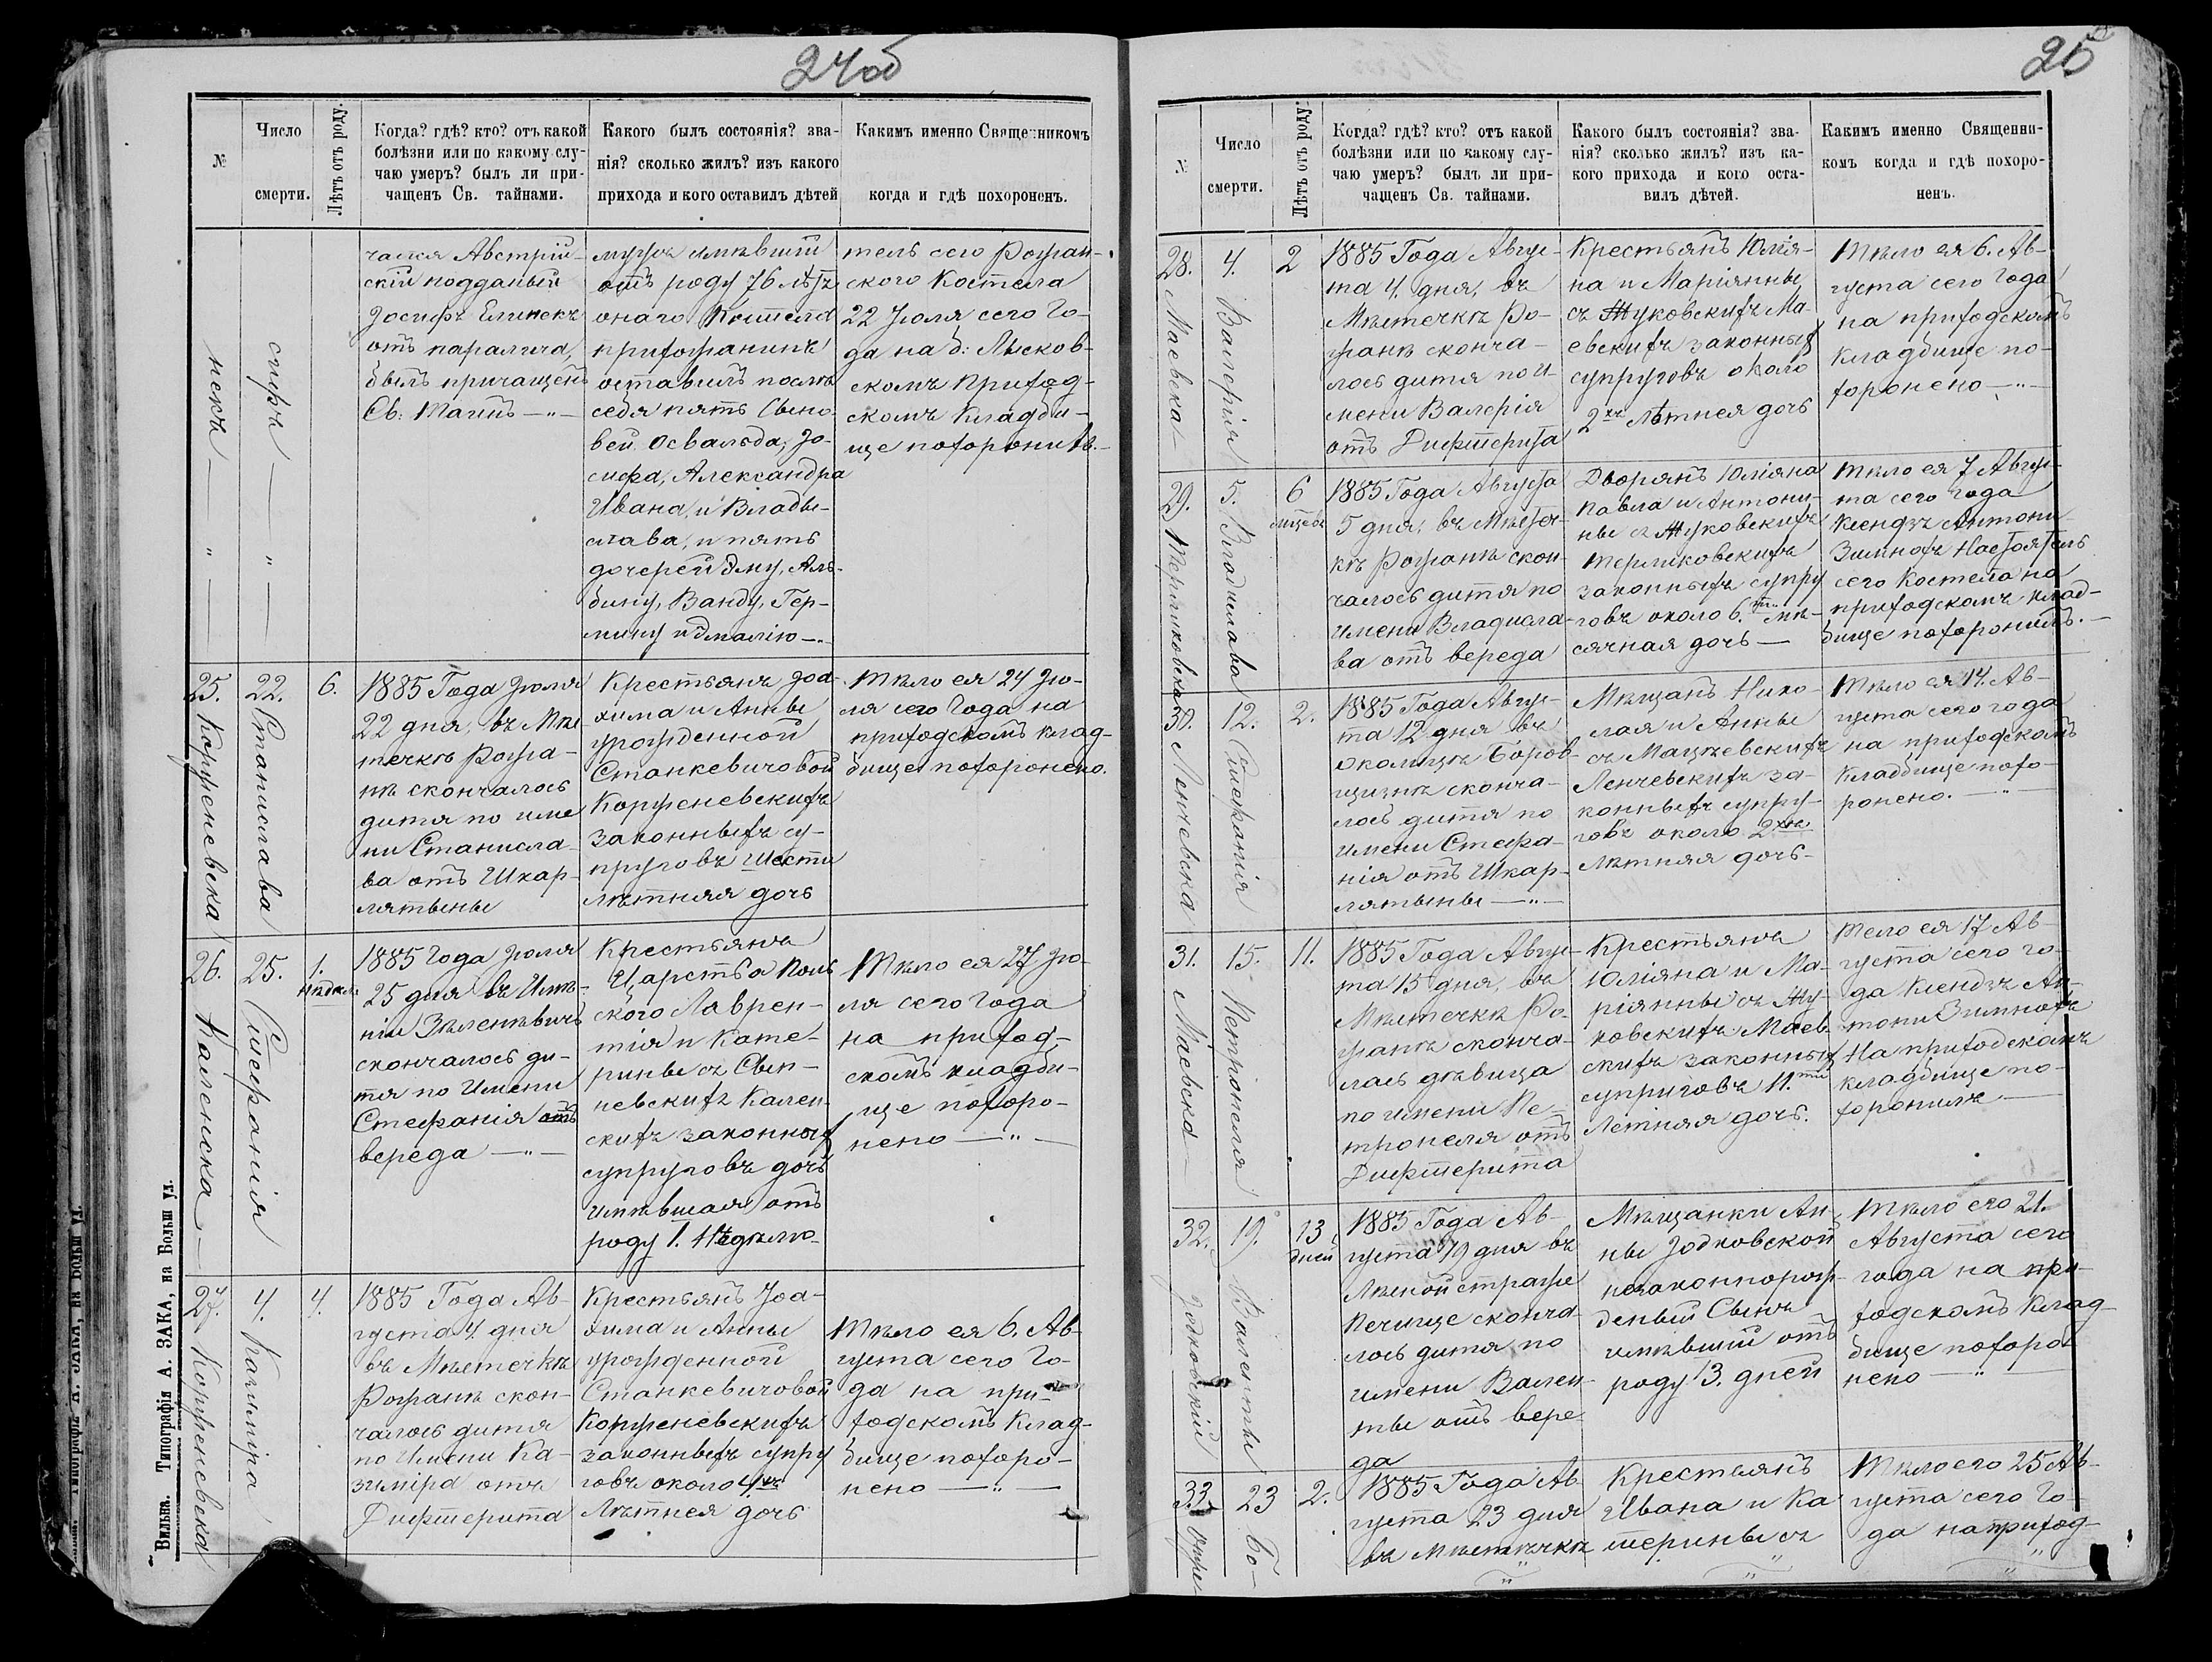 24об
№
Число
смерти.
Лѣтъ отъ роду.
Когда? гдѣ? кто? отъ какой
болѣзни или по какому слу-
чаю умеръ? былъ ли при-
чащенъ Св. тайнами.
Какого былъ состоянія? зва-
нія? сколько жилъ? изъ какого
прихода и кого оставилъ дѣтей
Какимъ именно Священникомъ
когда и гдѣ похороненъ.
некъ — " —
сифъ — " —
чался Австрій-
скій подданый
Іосифъ Елинекъ
отъ паралича,
былъ причащенъ
Св: Таинъ — " —
мужъ имѣвший
отъ роду 76 лѣтъ
онаго Костела
прихожанинъ
оставилъ послѣ
себя пять Сыно
вей Освальда, Іо-
сифа, Александра
Ивана, и Влады-
слава, и пять
дочерей Эму, Аль-
бину, Ванду, Гер-
мину и Эмалію —"
тель сего Рожан-
ского Костела
22 Іюля сего Го-
да на б: Лысков-
скомъ Приход-
скомъ Кладби-
ще похоронилъ. —
25. Корженевска
22. Станислава
6.
1885 Года Іюля
22 дня, въ Мѣс
течкѣ Рожа-
нѣ скончалось
дитя по име
ни Станисла-
ва отъ Шкар-
лятыны
Крестьянъ Іоа-
хима и Анны
урожденной
Станкевичовой
Корженевскихъ
законныхъ су-
пруговъ шести
лѣтняя дочь
Тѣло ея 24 Ію-
ля сего Года на
приходскомъ клад-
бище похоронено.
26. Каленска —
25. Стефанія
1. недѣл.
1885 Года Іюля
25 дня въ Имѣ-
ніи Зѣленѣвичъ
скончалось ди-
тя по Имени
Стефанія отъ
вереда — " —
Крестьянъ
Царства Поль
ского Лаврен-
тія и Кате-
рины съ Свен-
невскихъ Кален-
скихъ законныхъ
супруговъ дочь
имѣвшая отъ
роду 1. Недѣлю-
Тѣло ея 27 Ію-
ля сего Года
на приход-
скомъ кладби-
ще похоро-
нено — " —
27. Корженевска
4. Казиміра
4.
1885 Года Ав-
густа 4. дня
въ Мѣстечкѣ
Рожанѣ скон-
чалось дитя
по Имени Ка-
зиміра отъ
Дифтерита
Крестьянъ Іоа-
хима и Анны
урожденной
Станкевичовой
Корженевскихъ
законныхъ супру
говъ около 4хъ
Лѣтнея дочь
Тѣло ея 6. Ав-
густа сего Го-
да на при-
ходскомъ Клад-
бище похоро-
нено — " —
Вильна. Типографія А. ЗАКА, на Больш ул.
25
№
Число
смерти.
Лѣтъ отъ роду.
Когда? гдѣ? кто? отъ какой
болѣзни или по какому слу-
чаю умеръ? былъ ли при-
чащенъ Св. тайнами.
Какого былъ состоянія? зва-
нія? сколько жилъ? изъ ка-
кого прихода и кого оста-
вилъ дѣтей.
Какимъ именно Священни-
комъ когда и гдѣ похоро-
ненъ.
28. Маевска —
4. Валерія
2
1885 Года Авгус-
та 4. дня, въ
Мѣстечкѣ Ро-
жанѣ сконча-
лось дитя по И-
мени Валерія
отъ Дифтерита
Крестьянъ Юлія-
на и Маріянны
съ Жуковскихъ Ма-
евскихъ законныхъ
супруговъ около
2хъ Лѣтнея дочь
Тѣло ея 6. Ав-
густа сего Года
на приходскомъ
Кладбище по-
хоронено — " —
29. Терликовска
5. Владислава
6
мѣсяцевъ
1885 Года Августа
5 дня, въ Мѣстеч-
кѣ Рожанѣ скон-
чалось дитя по
имени Владисла-
ва отъ вереда
Дворянъ Юліяна
Павла и Антони-
ны съ Жуковскихъ
Терликовскихъ
законныхъ супру
говъ около 6.ти мѣ-
сячная дочь —
Тѣло ея 7 Авгус-
та сего года
Ксендзъ Антони
Зимнохъ Настоятель
сего Костела на
приходскомъ клад-
бище похоронилъ. —
30. Ленчевска
12. Стефанія
2.
1885 Года Авгус-
та 12 дня въ
Околицѣ Боров-
щизнѣ сконча-
лось дитя по
имени Стефа-
нія отъ Шкар-
лятыны — " —
Мѣщанъ Нико-
лая и Анны
съ Мацкевскихъ
Ленчевскихъ за-
конныхъ супру-
говъ около 2хъ
Лѣтняя дочь-
Тѣло ея 14. Ав-
густа сего года
на приходскомъ
Кладбище похо-
ронено. — " —
31. Маевска
15. Петронеля
11.
1885 Года Авгус-
та 15 дня, въ
Мѣстечкѣ Ро-
жанѣ сконча-
лась дѣвица
по имени Пе-
тронеля отъ
Дифтерита
Крестьянъ
Юліяна и Ма-
ріянны съ Жу-
ковскихъ Маев-
скихъ законныхъ
супруговъ 11.ти
Летняя дочь.
Тело ея 17 Ав-
густа сего го-
да Ксендзъ Ан-
тони Зимнохъ
На приходскомъ
кладбище по-
хоронилъ —
32. Іодковскій
19. Валенты
13
дней
1885 Года Ав-
густа 19 дня въ
Лѣсной страже
Печище сконча-
лось дитя по
имени Вален-
ты отъ вере-
да
Мѣщанки Ан-
ны Іодковской
незаконнорож-
деный Сынъ
имѣвший отъ
роду 13. дней
Тѣло его 21.
Августа сего
года на при-
ходскомъ Клад-
бище похоро
нено — " —
33.
23 Бо-
2.
1885 Года Ав-
густа 23 дня
въ Мѣстѣчкѣ
Крестьянъ
Ивана и Ка
терины съ
Тѣло его 25 Ав-
густа сего Го-
да на приход-